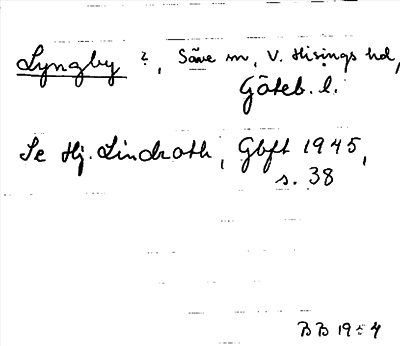 Lyngby ?, Säve sn, V. Hisings hd,
Göteb. l.
Se Hj. Lindroth, Gbft 1945,
s. 38
BB 1954